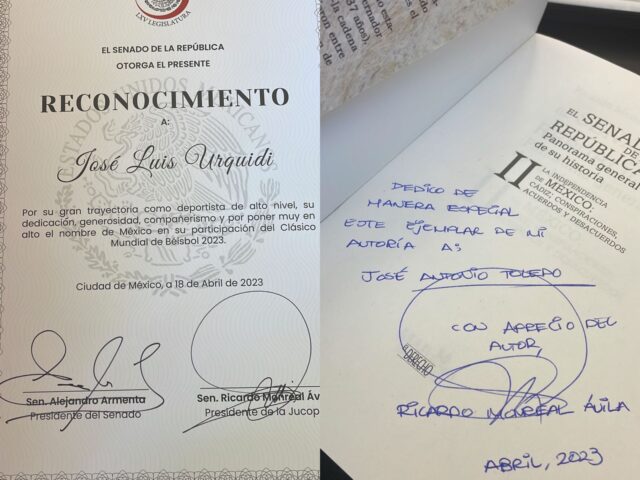 LXV LEGISLATURA
EL SENADO DE LA REPÚBLICA
OTORGA EL PRESENTE
RECONOCIMIENTO
A:
ESTADOS UNIDOS MEXICANOS
José Luis Urquidi
Por su gran trayectoria como deportista de alto nivel, su
dedicación, generosidad, compañerismo y por poner muy en
alto el nombre de México en su participación del Clásico
Mundial de Béisbol 2023.
Ciudad de México, a 18 de Abril de 2023
Sen. Alejandro Armenta
Presidente del Senado
Sen. Ricardo Monreal Áv
Presidente de la Jucop
gobernador
la cadena
37 años),
on entre
EL SENAD
DE
REPÚBLICA
Panorama general
de su historia
II
LA INDEPENDENCIA
DE MÉXICO
CÁDIZ, CONSPIRACIONES,
ACUERDOS Y DESACUERDOS
DEDICO DE
MANERA ESPECIAL
ESTE EJEMPLAR DE MI
AUTORÍA A:
JOSÉ ANTONIO TOLEDO
CON APRECIO DEL
AUTOR,
DERECHO
RICARDO MONREAL ÁVILA
ABRIL, 2023